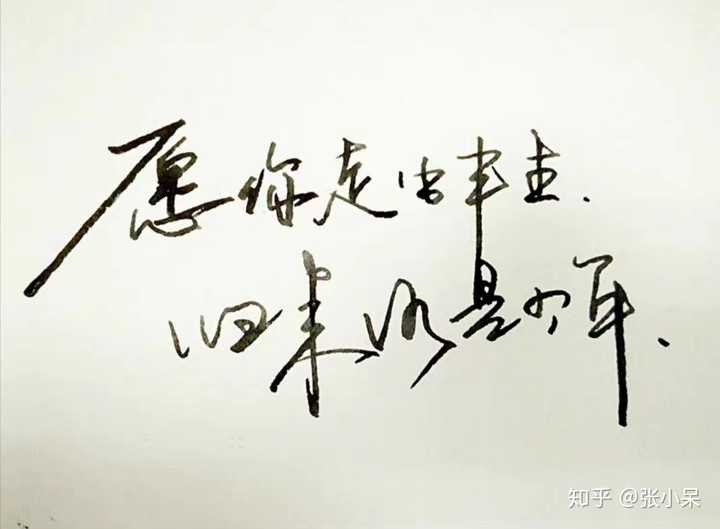 愿你走出半生.
归来仍是少年、
知乎 @张小呆